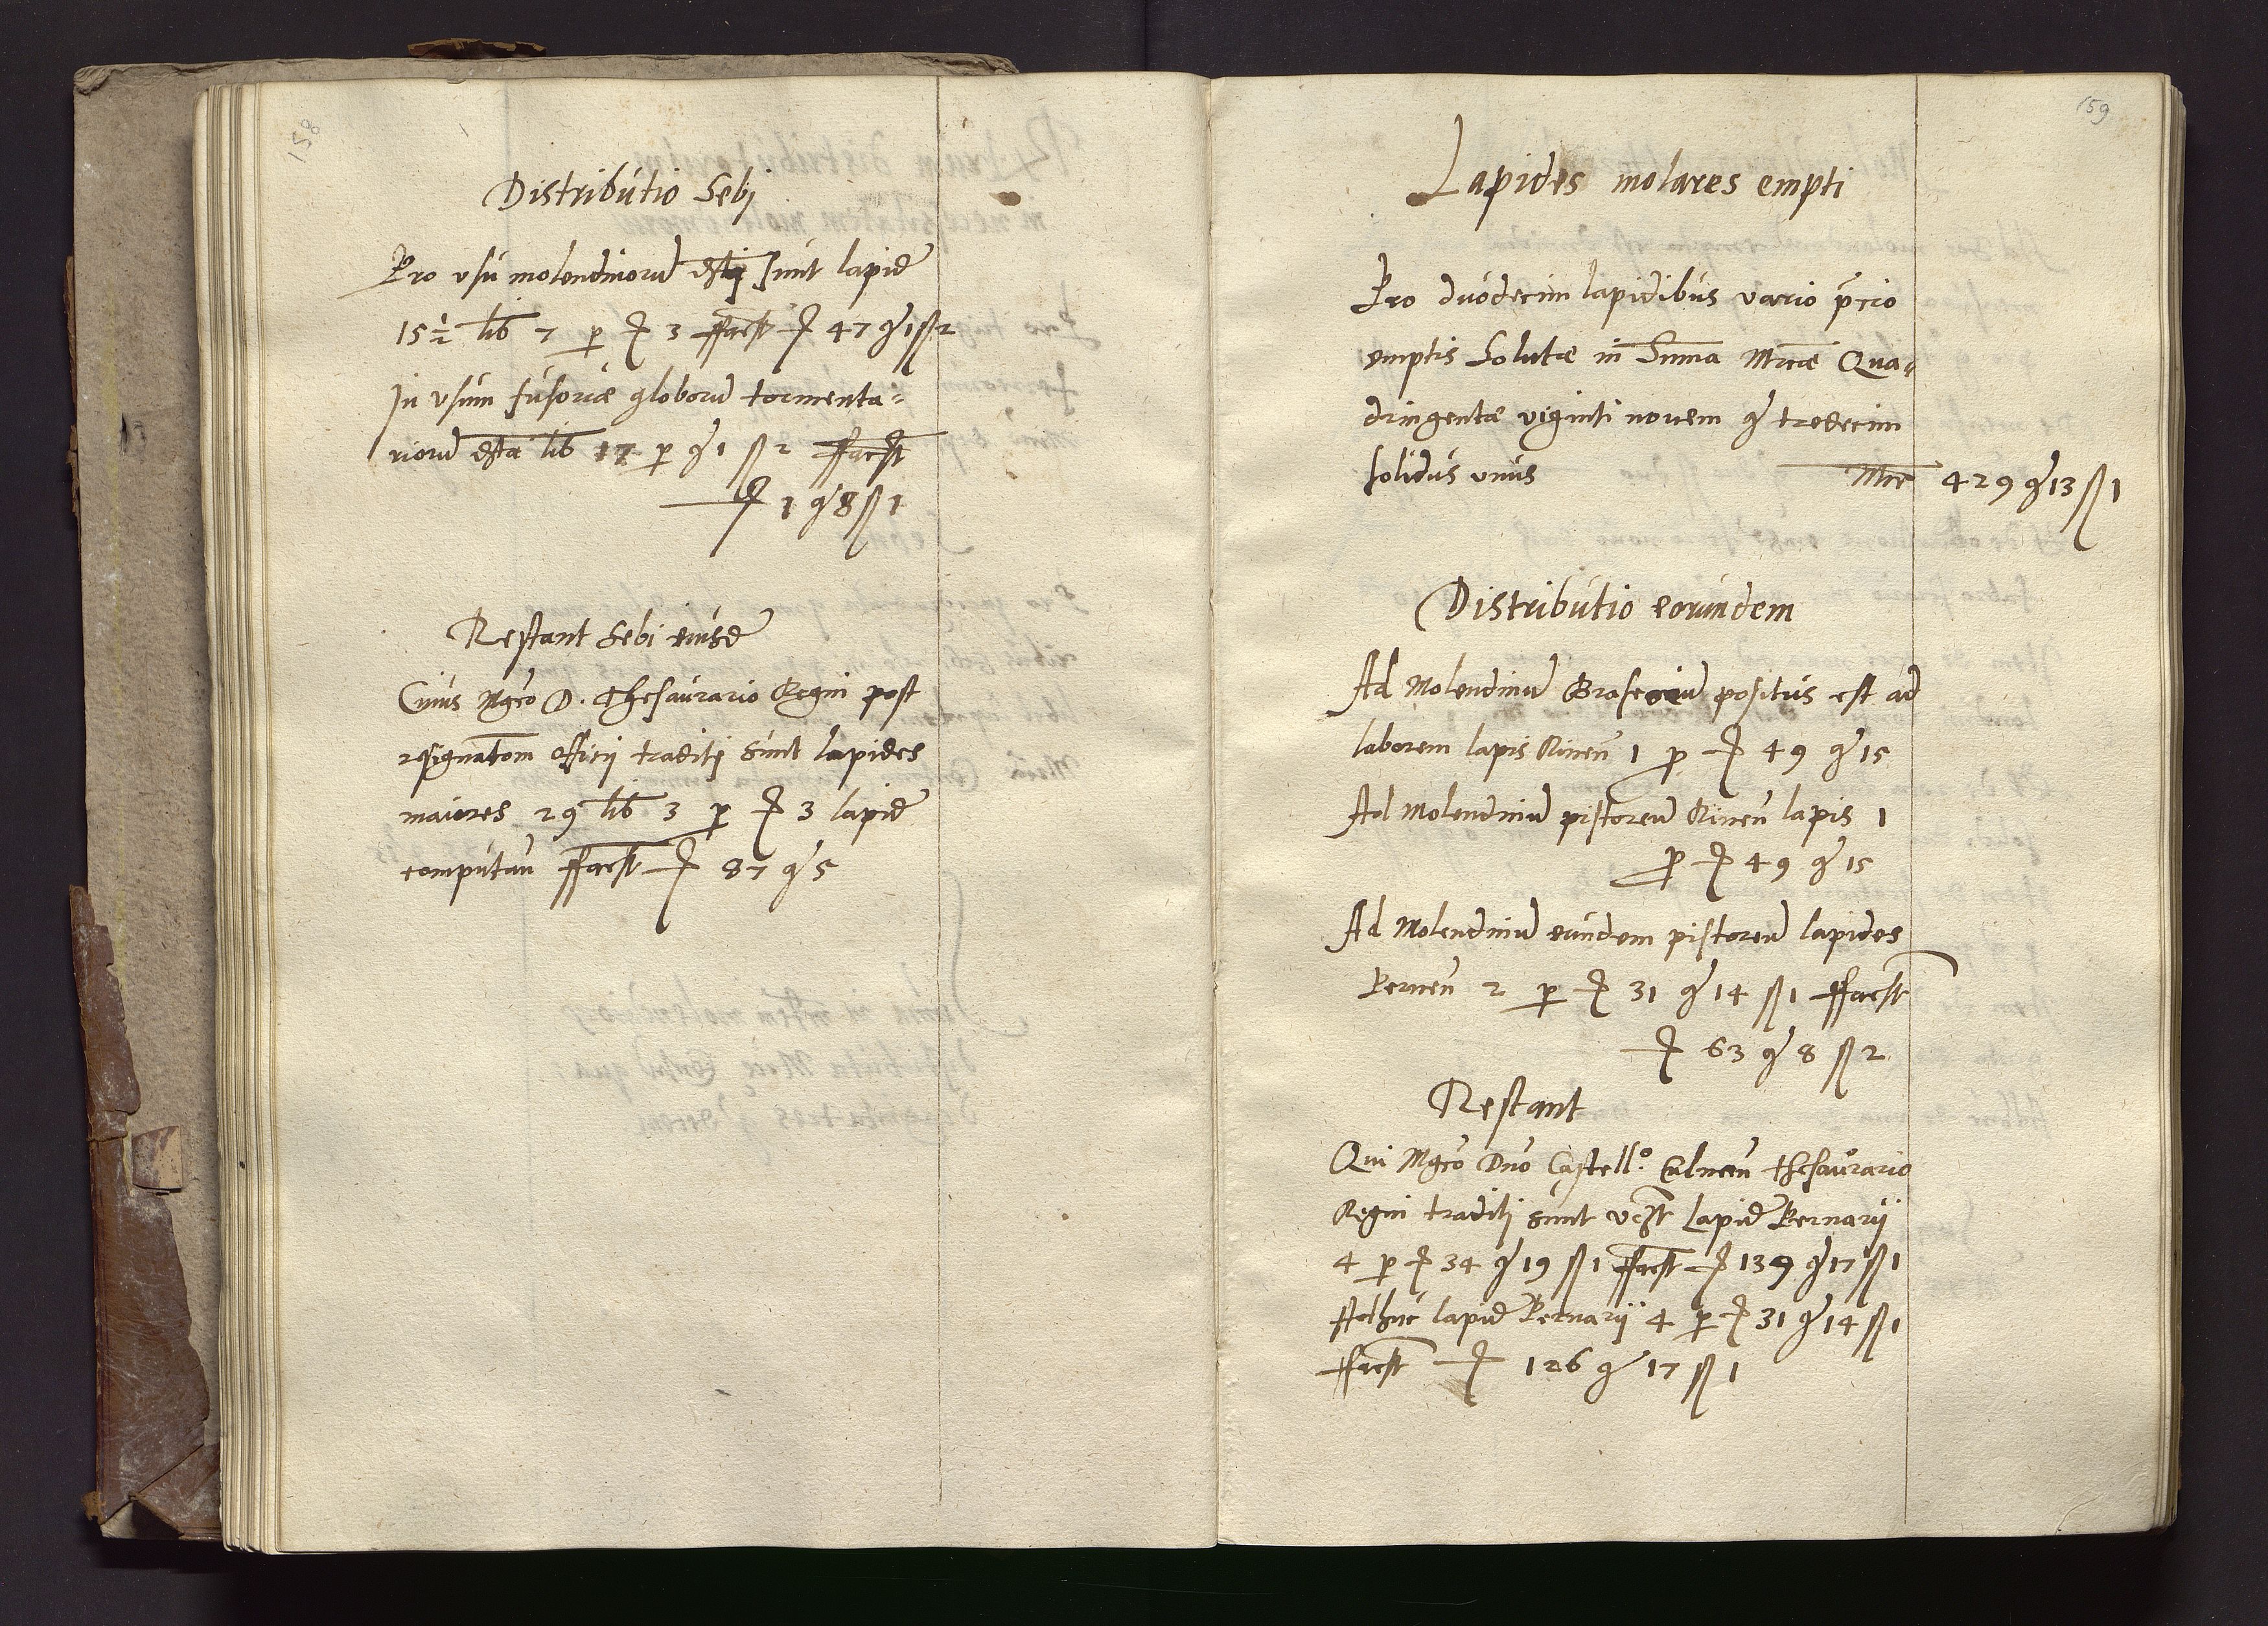 158
Distributio Sebi
Pro vsu molendinorū dsti sunt lapid
15½ lib 7 p ƒ 3 ffacst ƒ 47 g 1 ß 2
In vsum fusoriæ globorū tormenta-
riorū dsta lib 17 p g 1 ß 2 ffacst
ƒ 1 g 8 ß 1
Restant Sebi eiusd
Cuius Mgco D. Thesaurario Regni post
resignatōm officij traditj sunt lapides
maiores 29 lib 3 p ƒ 3 lapid
computan ffacst ƒ 87 g 5
159
Lapides molares empti
Pro duodecim lapidibus vario pcio
emptis Solutæ in Suma Mrcæ Qua-
dringentæ viginti nouem g tredecim
solidus vnus Mrc 429 g 13 ß 1
Distributio eorundem
Ad Molendinū positus est ad
laborem lapis Rinen 1 p ƒ 49 g 15
Ad Molendinū pistoreū Rinen lapis 1
p ƒ 49 g 15
Ad Molendinū eundem pistoreū lapides
Pernen 2 p ƒ 31 g 14 ß 1 ffacst
ƒ 63 g 8 ß 2
Restant
Qui Mgco Dno Castell.o Culmen thesaurario
Regni traditj sunt vcst Lapid Pernarij
4 p ƒ 34 g 19 ß 1 ffacst ƒ 139 g 17 ß 1
Adhuc lapid Pernarij 4 p ƒ 31 g 14 ß 1
ffacst ƒ 126 g 17 ß 1